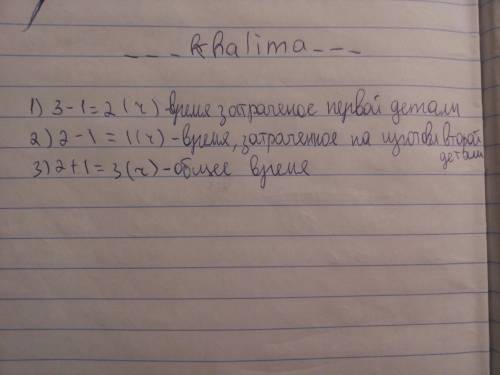 ___khalima___
1) 3-1=2(ч)-время затраченое первой детали
2) 2-1=1(ч)-время, затраченное на изготовл второй
детали
3) 2+1=3(ч)-общее время